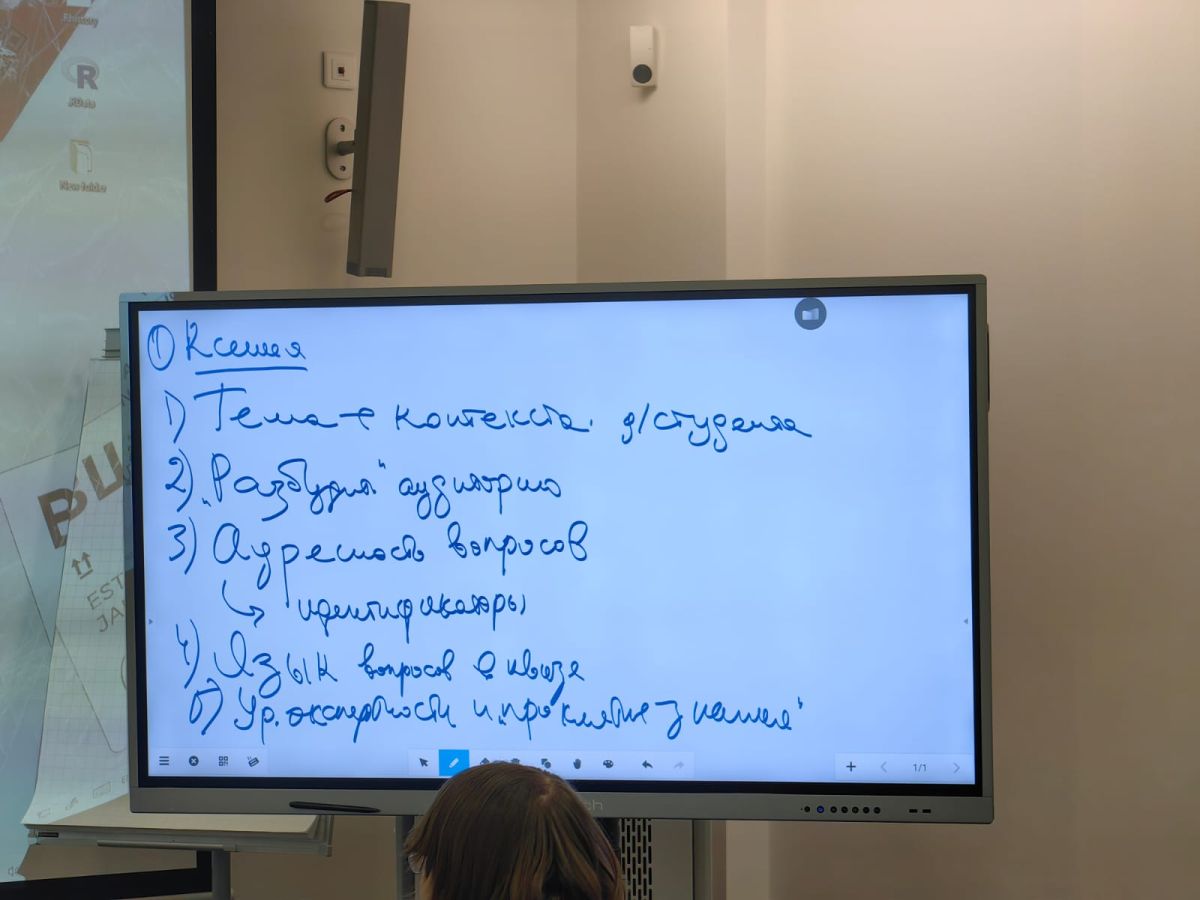 .Rhistory
R
.RData
New folder
① Ксения
1) Тема → контекста. д/студента
2) „Разбудил" аудиторию
3) Адресность вопросов
↳ идентификаторы
4) Язык вопросов в квизе
5) Ур. экспертности и „проклятие знания"
1/1
ВШ
EST
JA
ch